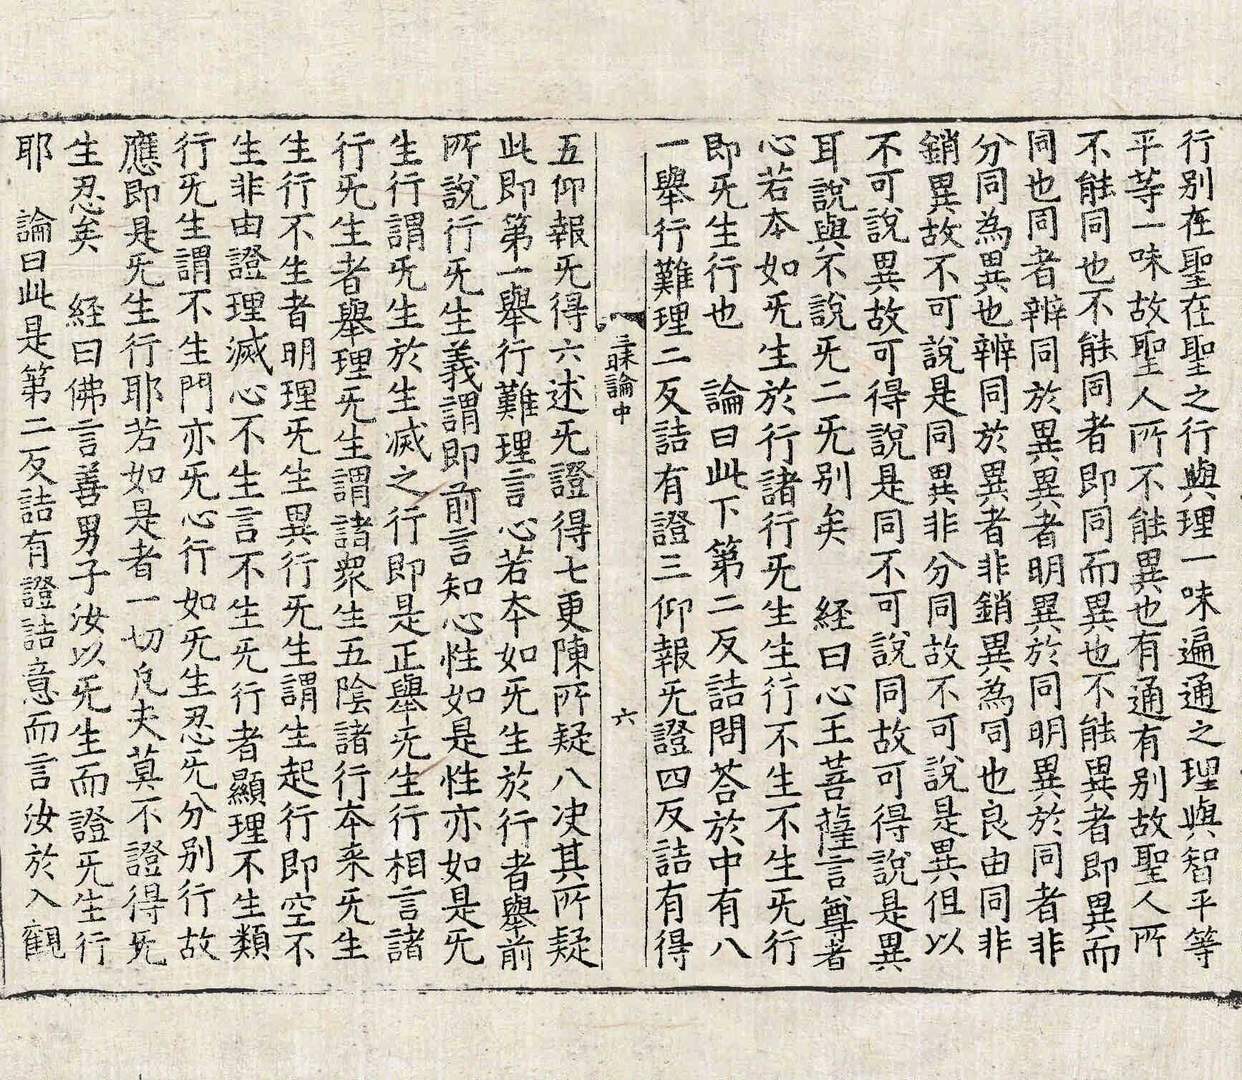 行別在聖在聖之行與理一味遍通之理與智平等
平等一味故聖人所不能異也有通有別故聖人所
不能同也不能同者即同而異也不能異者即異而
同也同者辨同於異異者明異於同明異於同者非
分同為異也辨同於異者非銷異為同也良由同非
銷異故不可說是同異非分同故不可說是異但以
不可說異故可得說是同不可說同故可得說是異
耳說與不說无二无別矣　経曰心王菩薩言尊者
心若本如无生於行諸行无生生行不生不生无行
即无生行也　論曰此下第二反詰問荅於中有八
一舉行難理二反詰有證三仰報无證四反詰有得
三昧論中　六
五仰報无得六述无證得七更陳所疑八决其所疑
此即第一舉行難理言心若本如无生於行者舉前
所說行无生義謂即前言知心性如是性亦如是无
生行謂无生於生滅之行即是正舉无生行相言諸
行无生者舉理无生謂諸衆生五陰諸行本来无生
生行不生者明理无生異行无生謂生起行即空不
生非由證理滅心不生言不生无行者顯理不生類
行无生謂不生門亦无心行如无生忍无分別行故
應即是无生行耶若如是者一切凡夫莫不證得无
生忍矣　経曰佛言善男子汝以无生而證无生行
耶　論曰此是第二反詰有證詰意而言汝於入觀